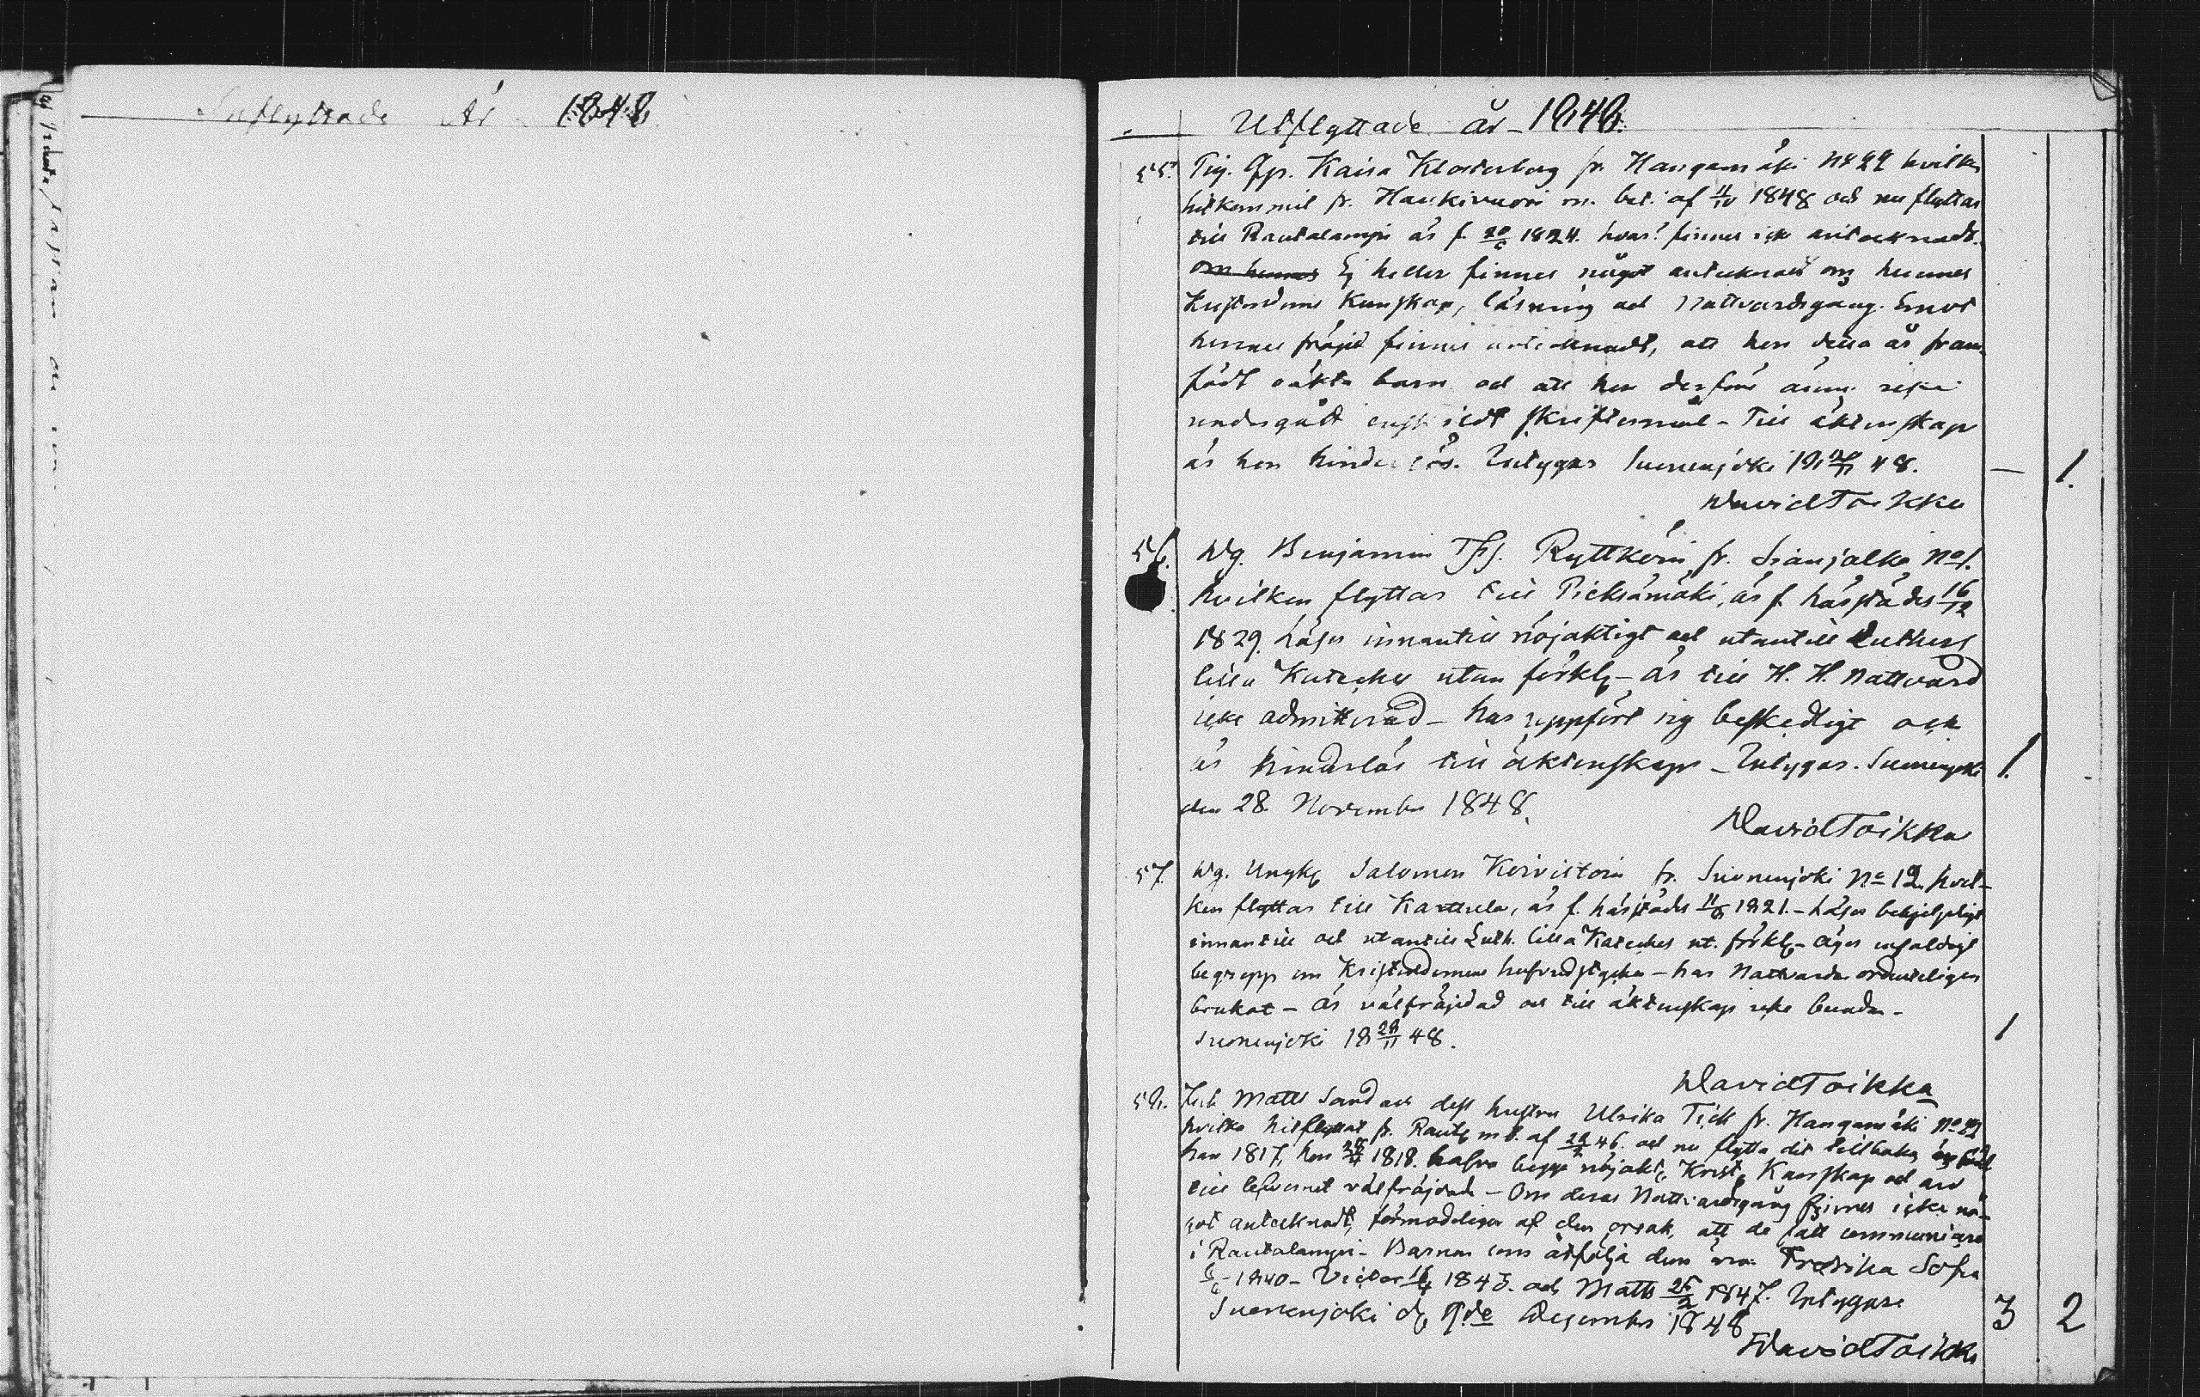 Inflyttade År 1848
Utflyttade år 1848.
55. Pig. Kaisa Klosterberg fr. Hangamäki No 22 hvilken
hitkommit fr. Haukivuori m. bet. af 11/10 1848 och nu flyttar
till Rautalampi är f. 20/6 1824. hvar? finnes ick antecknadt.
Om hennes Ej heller finnes något antecknadt om hennes
Kristendoms Kunskap, läsning och Nattvardsgång. Emot
hennes fräjd finnes antecknadt, att hon detta år fram-
födt oäkta barn och att hon derföre ännu icke
undergått enskildt skriftermål - Till äktenskap
är hon hinderlös. Intygar Suonenjoki 18 48. — 1.
David Toikka
56. Dg. Benjamin Ryttköin fr. Sianjalka No 1.
hvilken flyttar till Pieksämäki, är f. härstädes 16/12
1829. Läser innantill nöjaktigt och utantill Luthers
lilla Kateches utan förkl. - är till H. H. Nattvard
icke admitterad - har uppfört sig beskedligt och
är hinderlös till äktenskap - Intygar. Suonenjoki 1.
den 28 November 1848.
David Toikka
57. Dg. Ungk. Salomon Koivistoin fr. Suonenjoki No 12 hvil-
ken flyttar till Karttula, är f. härstädes 11/8 1821. - Läser behjelpligt
innantill och utantill Luth. lilla Kateches ut. förkl. - äger enfaldigt
begrepp om Kristendomens hufvudstycken - har Nattvarden ordenteligen
brukat - är välfräjdad och till äktenskap icke bunden -
Suonenjoki 18 28/11 48. 1
David Toikka
58. Matts Sand och dess hustru Ulrika Tick fr. Hangamäki No 22
hvilka hitflyttat fr. Raut. m. b. af 46. och nu flytta dit tillbaka
han 1817, hon 1818. hafva begge nöjakt. Krist. Kunskap och äro
till lefvernet välfräjdade - Om deras Nattvardsgång finnes icke nå-
got antecknadt, förmodeligen af den orsak, att de fått communicera
i Rautalampi - Barnen som åtfölja dem äro Fredrika Sofia
1840 - Victor 1843. och Matts 25/2 1847. Intygar
Suonenjoki d. 9de December 1848 3 2
David Toikka